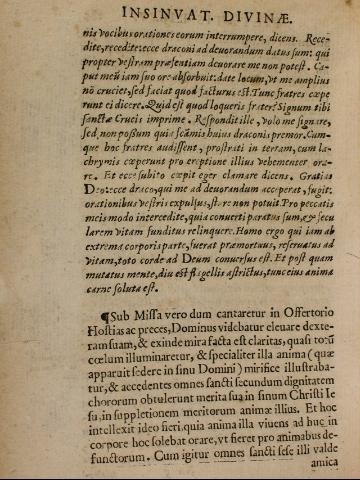 INSINVAT. DIVINÆ.
nis vocibus orationes eorum interrumpere, dicens. Rece-
dite, recedite: ecce draconi ad deuorandum datus sum: qui
propter vestram præsentiam deuorare me non potest. Ca-
put meū iam suo ore absorbuit: date locum, vt me amplius
nō cruciet, sed faciat quod facturus est. Tunc fratres cœpe
runt ei dicere. Quid est quod loqueris frater? Signum tibi
sanctæ Crucis imprime. Respondit ille, volo me signare,
sed non possum quia squamis huius draconis premor. Cum-
que hoc fratres audissent, prostrati in terram, cum la-
chrymis cœperunt pro ereptione illius vehementer ora-
re. Et ecce subito cœpit æger clamare dicens. Gratias
Deo: ecce draco, qui me ad deuorandum acceperat, fugit:
orationibus vestris expulsus, stare non potuit. Pro peccatis
meis modo intercedite, quia conuerti paratus sum, & secu
larem vitam funditus relinquere. Homo ergo qui iam ab
extrema corporis parte, fuerat præmortuus, reseruatus ad
vitam, toto corde ad Deum conuersus est. Et post quam
mutatus mente, diu est flagellis astrictus, tunc eius anima
carne soluta est.
¶ Sub Missa vero dum cantaretur in Offertorio
Hostias ac preces, Dominus videbatur eleuare dexte-
ram suam, & exinde mira facta est claritas, quasi totū
cœlum illuminaretur, & specialiter illa anima (quæ
apparuit sedere in sinu Domini) mirifice illustraba-
tur, & accedentes omnes sancti secundum dignitatem
chororum obtulerunt merita sua in sinum Christi Ie
su, in suppletionem meritorum animæ illius. Et hoc
intellexit ideo fieri, quia anima illa viuens ad huc in
corpore hoc solebat orare, vt fieret pro animabus de-
functorum. Cum igitur omnes sancti sese illi valde
amica